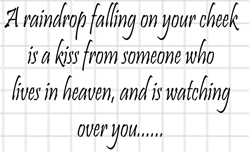 A raindrop falling on your cheek
is a kiss from someone who
lives in heaven, and is watching
over you......